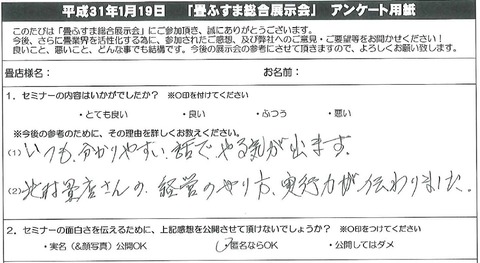 平成31年1月19日 「畳ふすま総合展示会」 アンケート用紙
このたびは「畳ふすま総合展示会」にご参加頂き、誠にありがとうございます。
今後、さらに畳業界を活性化する為に、参加されたご感想、及び弊社へのご意見・ご要望等をお聞かせください!
良いこと、悪いこと、どんな事でも結構です。今後の展示会の参考にさせて頂きますので、よろしくお願い致します。
畳店様名: お名前:
1. セミナーの内容はいかがでしたか? ※○印を付けてください
・とても良い ・良い ・ふつう ・悪い
※今後の参考のために、その理由を詳しくお教えください。
(1) いつも分かりやすい話で、やる気が出ます。
(2) 北村畳店さんの、経営のやり方、実行力が伝わりました。
2. セミナーの面白さを伝えるために、上記感想を公開させて頂けないでしょうか? ※○印をつけてください
・実名(&顔写真)公開OK ・匿名ならOK ・公開してはダメ